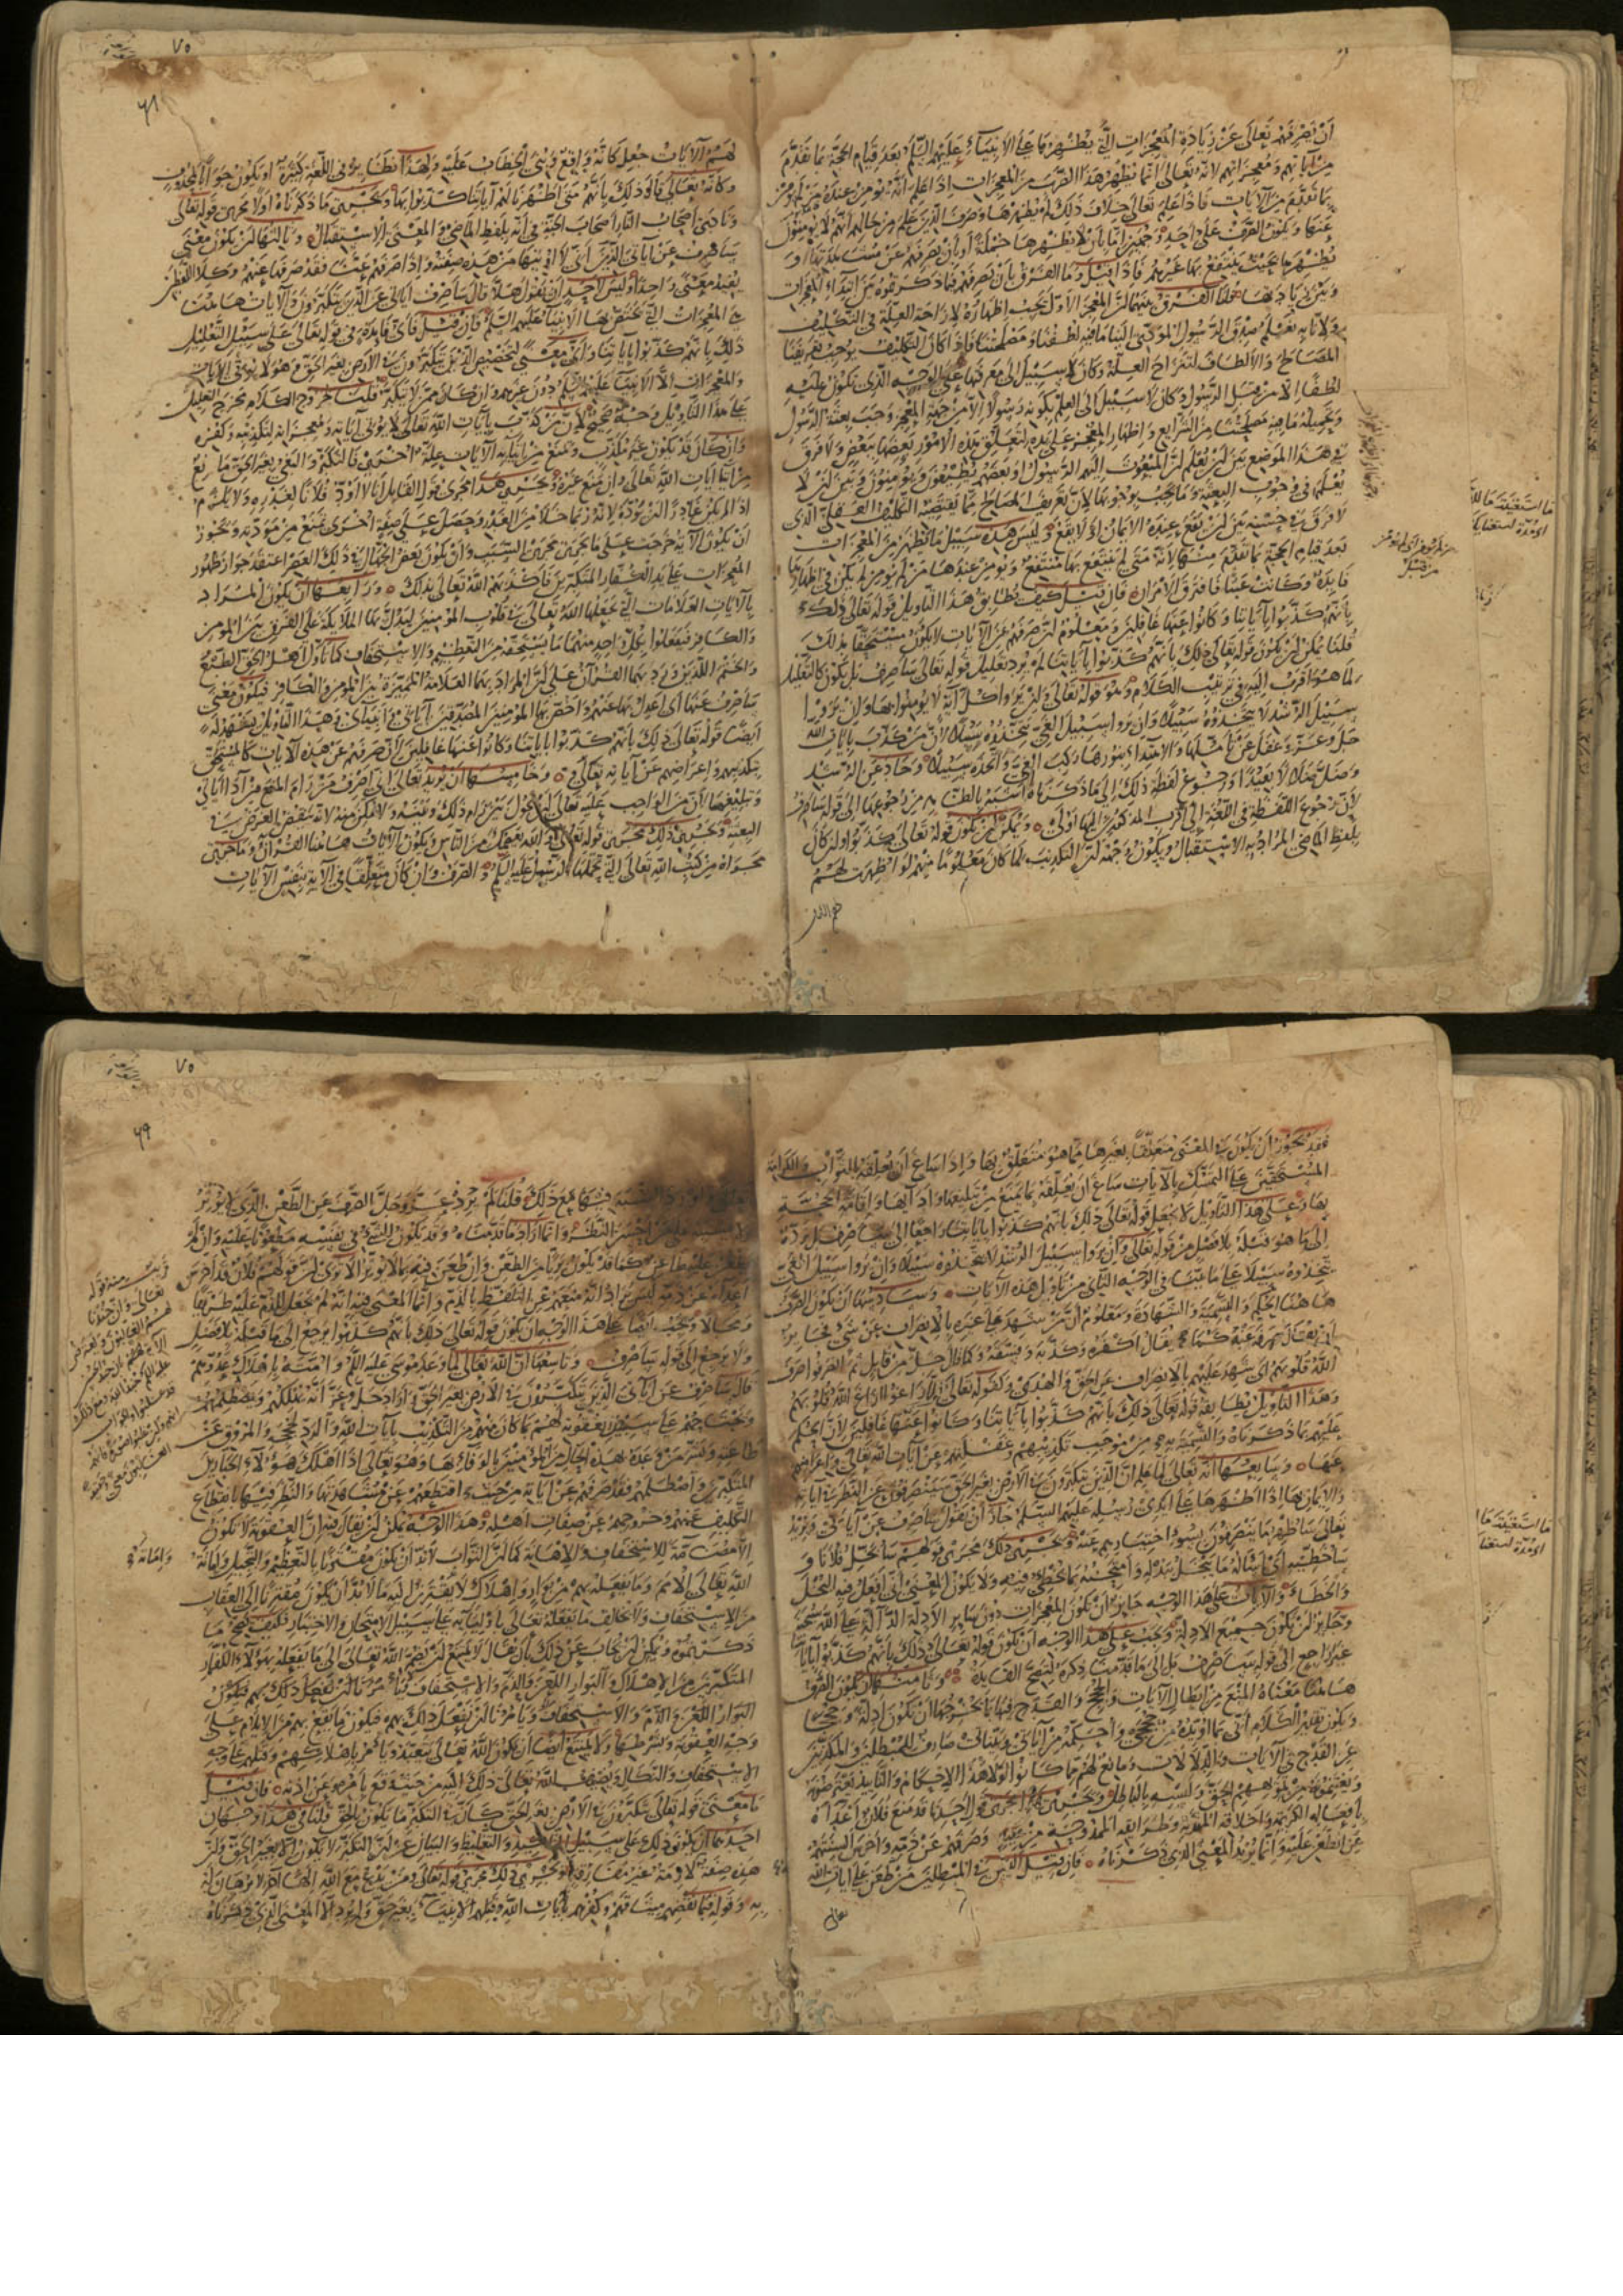 أن نصرفهم تعالى عن زيادة المعجزات التي يظهرها على الأنبياء عليهم السلم بعد قيام الحجة بما تقدم
من آياتهم ومعجزاتهم لأنه تعالى إنما يظهر هذا الضرب من المعجزات إذا علم أنه يؤمن عنده من لم يؤمن
بما تقدم من الآيات فإذا علم تعالى خلاف ذلك لم يظهرها وصرف الذين علم من حالهم أنهم لا يؤمنون
عنها ويكون الصرف على أحد وجهين إما بأن لا يظهرها جملة أو بأن يصرفهم عن مشاهدتها و
يظهرها بحيث ينتفع بها غيرهم فإذا قيل وما الفرق بأن نصرفهم فيما ذكرتموه بين ابتداء المعجزات
وبين زيادتها قلنا الفرق بينهما أن المعجز الأول يجب إظهاره لإزاحة العلة في التكليف
ولأنا به نعلم صدق الرسول المؤدي إلينا ما فيه لطفنا ومصلحتنا فإذا كان التكليف يوجب تعريفنا
المصالح والألطاف لتنزاح العلة وكان لا سبيل إلى معرفتها على الوجه الذي تكون عليه
لطفا إلا من قبل الرسول وكان لا سبيل إلى العلم بكونه رسولا إلا من جهة المعجز وجب بعثة الرسول
وتحميله ما فيه مصلحتنا من الشرايع وإظهار المعجز على يده لتعلق هذه الأمور بعضها ببعض ولا فرق
في هذا الموضع بين أن يعلم أن المبعوث إليهم الرسول أو بعضهم يطيعون ويؤمنون وبين أن لا
يعلم ذلك في وجوب البعثة وما يجب بوجوبها لأن تعريف المصالح مما يقتضيه التكليف العقلي الذي
لا فرق في حسنه بين أن يقع عنده الإيمان أو لا يقع وليس هذه سبيل ما يظهر من المعجزات
بعد قيام الحجة بما تقدم منها لأنه متى لم ينتفع بها منتفع ويؤمن عندها من لم يؤمن لم يكن في إظهارها
فايدة وكانت عبثا فافترق الأمران فإن قيل كيف يطابق هذا التأويل قوله تعالى ذلك
بأنهم كذبوا بآياتنا وكانوا عنها غافلين ومعلوم أن صرفهم عن الآيات لا يكون مستحقا بذلك
قلنا يمكن أن يكون قوله تعالى ذلك بأنهم كذبوا بآياتنا لم يرد تعليل قوله تعالى سأصرف بل يكون كالتعليل
لما هو أقرب إليه في ترتيب الكلام وهو قوله تعالى وإن يروا كل آية لا يؤمنوا بها وإن يروا
سبيل الرشد لا يتخذوه سبيلا وإن يروا سبيل الغي يتخذوه سبيلا لأن من كذب بآيات الله
جل وعز وغفل عن تأملها والاهتداء بنورها ركب الغي واتخذه سبيلا وحاد عن الرشد
وضل ضلالا بعيدا ورجوع لفظة ذلك إلى ما ذكرناه أشبه بالظاهر من رجوعها إلى قوله سأصرف
لأن رجوع اللفظة في اللغة إلى أقرب المذكورين إليها أولى ويمكن أن يكون قوله تعالى كذبوا وإن كان
بلفظ الماضي المراد به الاستقبال ويكون وجهه أن التكذيب لما كان معلوما منهم لو أظهرت لهم
هذه الآيات جعل كأنه واقع وبني الخطاب عليه ولهذا نظاير في اللغة كثيرة أو يكون جوابا لمحذوف
وكأنه تعالى قال ذلك بأنهم متى أظهرنا لهم آياتنا كذبوا بها ويجري ما ذكرناه أولا مجرى قوله تعالى
ونادى أصحاب النار أصحاب الجنة في أنه بلفظ الماضي والمعنى الاستقبال وثالثها أن يكون معنى
سأصرف عن آياتي الذين أي لا أؤتيها من هذه صفته وإذا صرفهم عنها فقد صرفها عنهم وكلا اللفظين
يفيد معنى واحدا وليس لأحد أن يقول هلا قال سأصرف آياتي عن الذين يتكبرون والآيات هاهنا
هي المعجزات التي تختص بها الأنبياء عليهم السلم فإن قيل فأي فايدة في قوله تعالى على سبيل التعليل
ذلك بأنهم كذبوا بآياتنا وأي معنى لتخصيص الذين يتكبرون في الأرض بغير الحق وهو لا يؤتي الآيات
والمعجزات إلا الأنبياء عليهم السلم دون غيرهم وإن كان ممن لا يتكبر قلت خروج الكلام مخرج التعليل
على هذا التأويل وجه صحيح لأن من كذب بآيات الله تعالى لا يؤتى آياته ومعجزاته لتكذيبه وكفره
وإن كان قد يكون غير مكذب ويمنع من إتيانه الآيات علة أخرى فالتكبر والبغي بغير الحق مانع
من إيتاء آيات الله تعالى وإن منع غيره ويجري هذا مجرى قول القايل أنا لا أود فلانا لغدره ولا يلزم
إذا لم يكن غادرا أن يوده لأنه ربما خلا من الغدر وحصل على صفة أخرى تمنع من مودته ويجوز
أن يكون الآية خرجت على ما يجري مجرى السبب وأن يكون بعض الجهال في ذلك العصر اعتقد جواز ظهور
المعجزات على يد الكفار المتكبرين فأكذبهم الله تعالى بذلك ورابعها أن يكون المراد
بالآيات العلامات التي يجعلها الله تعالى في قلوب المؤمنين ليدل بها الملائكة على الفرق بين المؤمن
والكافر فيفعلوا بكل واحد منهما ما يستحقه من التعظيم والاستخفاف كما تأول أهل الحق الطبع
والختم اللذين ورد بهما القرآن على أن المراد بهما العلامة المميزة بين المؤمن والكافر فيكون معنى
سأصرف عنها أي أعدل بها عنهم وأختص بها المؤمنين المصدقين بآياتي وأنبيائي وهذا التأويل يشهد له
أيضا قوله تعالى ذلك بأنهم كذبوا بآياتنا وكانوا عنها غافلين لأن صرفهم عن هذه الآيات كالمستحق
بتكذيبهم وإعراضهم عن آياته تعالى وخامسها أن يريد تعالى إني أصرف من رام المنع من أداء آياتي
وتبليغها لأن من الواجب عليه تعالى أن يحول بين من رام ذلك وبينه ولا يمكن منه لأنه ينقض الغرض في
البعثة ويجري ذلك مجرى قوله تعالى والله يعصمك من الناس ويكون الآيات هاهنا القرآن وما جرى
مجراه من كتب الله تعالى التي تحملها الرسل عليهم السلم والصرف وإن كان متعلقا في الآية بنفس الآيات
فقد يجوز أن يكون في المعنى متعلقا بغيرها مما هو متعلق بها وإذا ساغ أن يعلقه بالثواب والكرامة
المستحقين على التمسك بالآيات ساغ أن يعلقه بما يمنع من تبليغها وأدائها وإقامة الحجة
بها وعلى هذا التأويل لا يجعل قوله تعالى ذلك بأنهم كذبوا بآياتنا راجعا إلى سأصرف بل يرده
إلى ما هو قبله بلا فصل من قوله تعالى وإن يروا سبيل الرشد لا يتخذوه سبيلا وإن يروا سبيل الغي
يتخذوه سبيلا على ما بينا في الوجه الثاني من تأويل هذه الآيات وسادسها أن يكون الصرف
هاهنا الحكم والتسمية والشهادة ومعلوم أن من شهد على غيره بالانصراف عن شيء فجايز
أن يقال صرفه عنه كما يقال أكفره وكذبه وفسقه وكما قال جل من قايل ثم انصرفوا صرف
الله قلوبهم أي شهد عليهم بالانصراف عن الحق والهدى وكقوله تعالى فلما زاغوا أزاغ الله قلوبهم
وهذا التأويل يطابقه قوله تعالى ذلك بأنهم كذبوا بآياتنا وكانوا عنها غافلين لأن الحكم
عليهم بما ذكرناه والتسمية به من موجب تكذيبهم وغفلتهم عن آيات الله تعالى وإعراضهم
عنها وسابعها أنه تعالى لما علم أن الذين يتكبرون في الأرض بغير الحق سينصرفون عن النظر في آياته
والإيمان بها إذا أظهرها على أيدي رسله عليهم السلم جاز أن يقول سأصرف عن آياتي ويريد
تعالى سأظهر ما ينصرفون بسوء اختيارهم عنه ويجري ذلك مجرى قولهم سأبخل فلانا و
سأخطيه أي أسأله ما يبخل ببذله وأمتحنه بما يخطئ فيه ولا يكون المعنى إني أفعل فيه البخل
والخطأ والآيات على هذا الوجه جايز أن يكون المعجزات دون ساير الأدلة الدالة على الله تعالى
وجايز أن يكون جميع الأدلة ويجب على هذا الوجه أن يكون قوله تعالى ذلك بأنهم كذبوا بآياتنا
غير راجع إلى قوله سأصرف بل إلى ما قدمنا ذكره لتصح الفايدة وثامنها أن يكون الصرف
هاهنا معناه المنع من إبطال الآيات والحجج والقدح فيها بما يخرجها من أن يكون أدلة وحججا
ويكون تقدير الكلام أني بما أؤيده من حججي وأحكمه من آياتي وبيناتي صارف للمبطلين والمكذبين
عن القدح في الآيات والدلالات ومانع لهم مما كانوا لولا هذا الإحكام والتأييد يعترضونه
ويغتنمونه من تمويههم الحق ولبسه بالباطل ويجري هذا مجرى قول أحدنا قد منع فلان أعداءه
بأفعاله الكريمة وأخلاقه المهذبة وطرايقه الممدوحة من ذمه وصرفهم عن ذمه وأخرس ألسنتهم
عن الطعن عليه وإنما يريد المعنى الذي ذكرناه فإن قيل أليس في المبطلين من طعن على آيات الله
تعالى وأورد الشبهة فيها مع ذلك قلنا لم يرد عز وجل الصرف عن الطعن الذي لا يؤثر
وإنما أراد ما قدمناه وقد يكون الشيء في نفسه مطعونا عليه وإن لم
يطعن عليه طاعن كما قد يكون بريا من الطعن وإن طعن فيه بما لا يؤثر ألا ترى أن قولهم فلان قد أخرس
أعداءه عن ذمه ليس يراد أنه منعهم عن التلفظ بالذم وإنما المعنى فيه أنه لم يجعل للذم عليه طريقا
ومجالا ويجب أيضا على هذا الوجه أن يكون قوله تعالى ذلك بأنهم كذبوا يرجع إلى ما قبله بلا فصل
ولا يرجع إلى قوله سأصرف وتاسعها أن الله تعالى لما وعد موسى عليه السلم وأمته بإهلاك عدوهم
قال سأصرف عن آياتي الذين يتكبرون في الأرض بغير الحق وأراد جل وعز أنه يهلكهم ويصطلمهم
ويجتاحهم على سبيل العقوبة لهم بما كان منهم من التكذيب بآيات الله والرد لحججه والمروق عن
طاعته وبشر من وعده بهذه الحال من المؤمنين بالوفاء بها وهو تعالى إذا أهلك هؤلاء الجبارين
المتكبرين واصطلمهم فقد صرفهم عن آياته من حيث اقتطعهم عن مشاهدتها والنظر فيها بانقطاع
التكليف عنهم وخروجهم عن صفات أهله وهذا الوجه يمكن أن يقال فيه أن العقوبة لا تكون
إلا مضامة للاستخفاف والإهانة كما أن الثواب لا بد أن يكون مقترنا بالتعظيم والتبجيل وإماتة
الله تعالى للأمم وما يفعله بهم من بوار وإهلاك لا يقترن إليه ما لا بد أن يكون مقترنا إلى العقاب
من الاستخفاف ولا يخالف ما يفعله تعالى بأوليائه على سبيل الامتحان والاختبار فكيف يصح ما
ذكرتموه ويمكن أن يجاب عن ذلك بأن يقال لا يمتنع أن يضم الله تعالى إلى ما يفعله بهؤلاء الكفار
المتكبرين من الإهلاك والبوار اللعن والذم والاستخفاف ويأمرنا أن نفعل ذلك بهم فيكون
البوار اللعن والذم والاستخفاف ويأمرنا أن نفعل ذلك بهم فيكون ما يقع بهم من الإيلام على
وجه العقوبة وبشرطها ولا يمتنع أيضا أن يكون الله تعالى يتعبد ويأمر بإهلاكهم وقتلهم على وجه
الاستخفاف والنكال ويضيف الله تعالى ذلك إليه من حيث وقع بأمره وعن إذنه فإن قيل
ما معنى قوله تعالى يتكبرون في الأرض بغير الحق كأن في التكبر ما يكون بالحق قلنا في هذا وجهان
أحدهما أن يكون ذلك على سبيل التأكيد والتغليظ والبيان عن أن التكبر لا يكون إلا بغير الحق وأن
هذه صفة لازمة غير مفارقة ويجري ذلك مجرى قوله تعالى ومن يدع مع الله إلها آخر لا برهان له
به وقوله فبما نقضهم ميثاقهم وكفرهم بآيات الله وقتلهم الأنبياء بغير حق ولم يرد إلا المعنى الذي ذكرناه